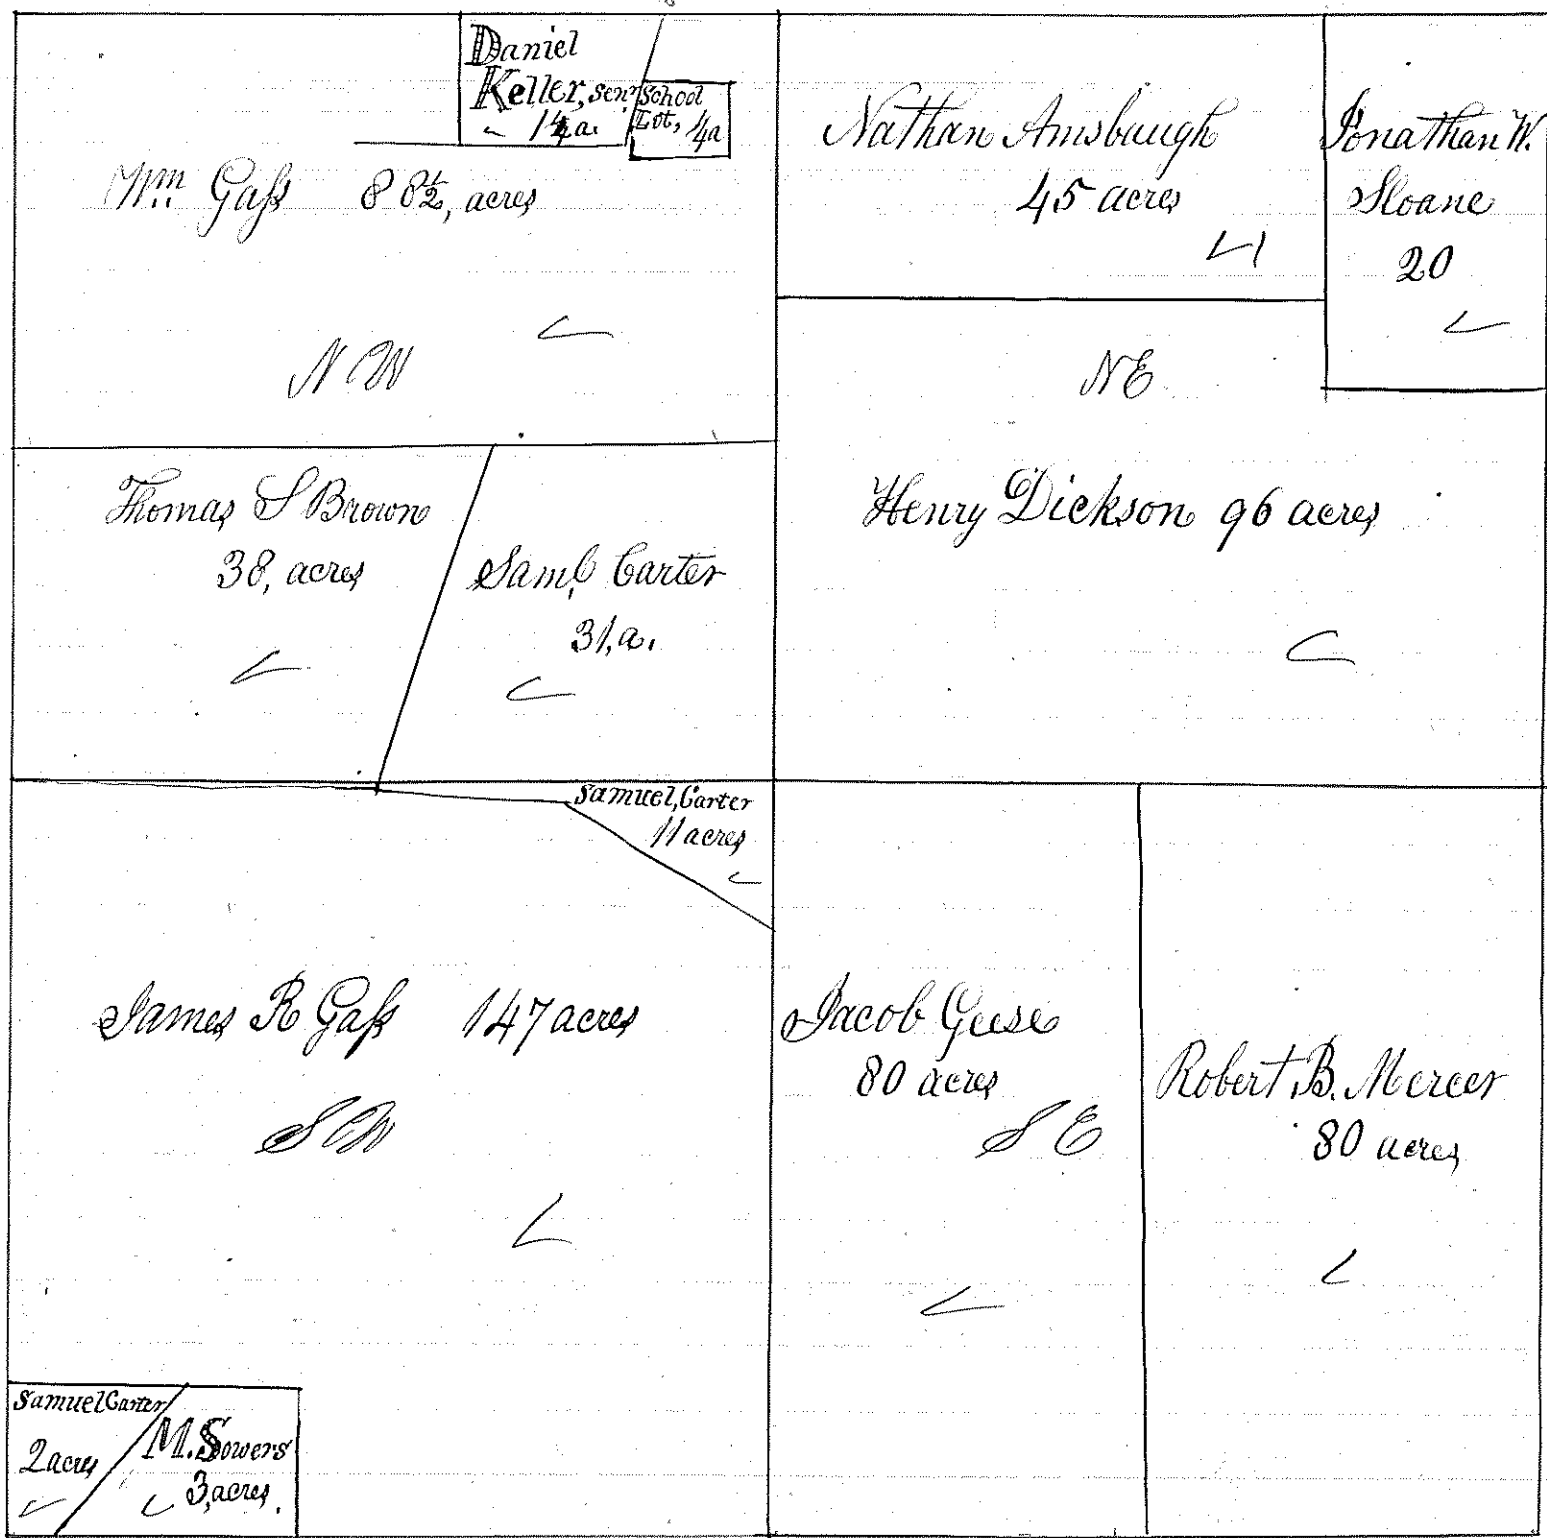 Daniel
Keller, senr
1¼a.
School
Lot, ¼a
Wm Gaſs 88½, acres
N W
Nathan Amsbaugh
45 acres
Jonathan W.
Sloane
20
N E
Thomas S Brown
38, acres
Saml, Carter
31, a.
Henry Dickson 96 acres
Samuel, Carter
11 acres
James R Gaſs 147 acres
S W
Jacob Geese
80 acres
S E
Robert B. Mercer
80 acres
Samuel Carter
2 acres
M. Sowers
3, acres.